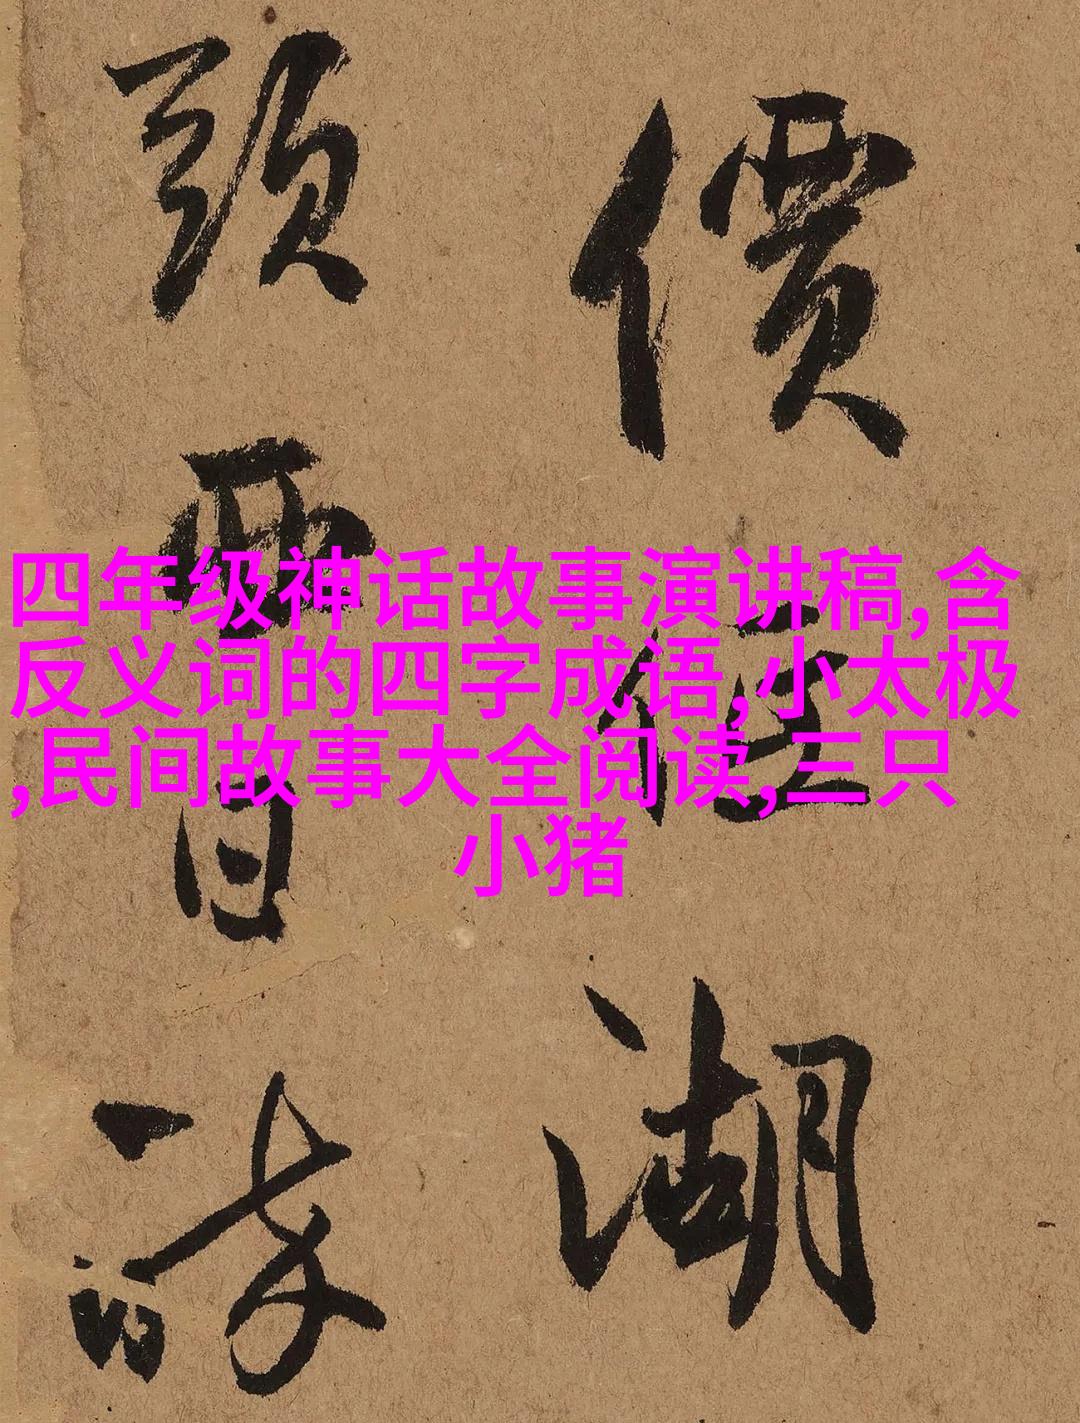 價 但 湖
頭 西 日 詩
四年级神话故事演讲稿,含
反义词的四字成语,小太极
,民间故事大全阅读,三只
小猪